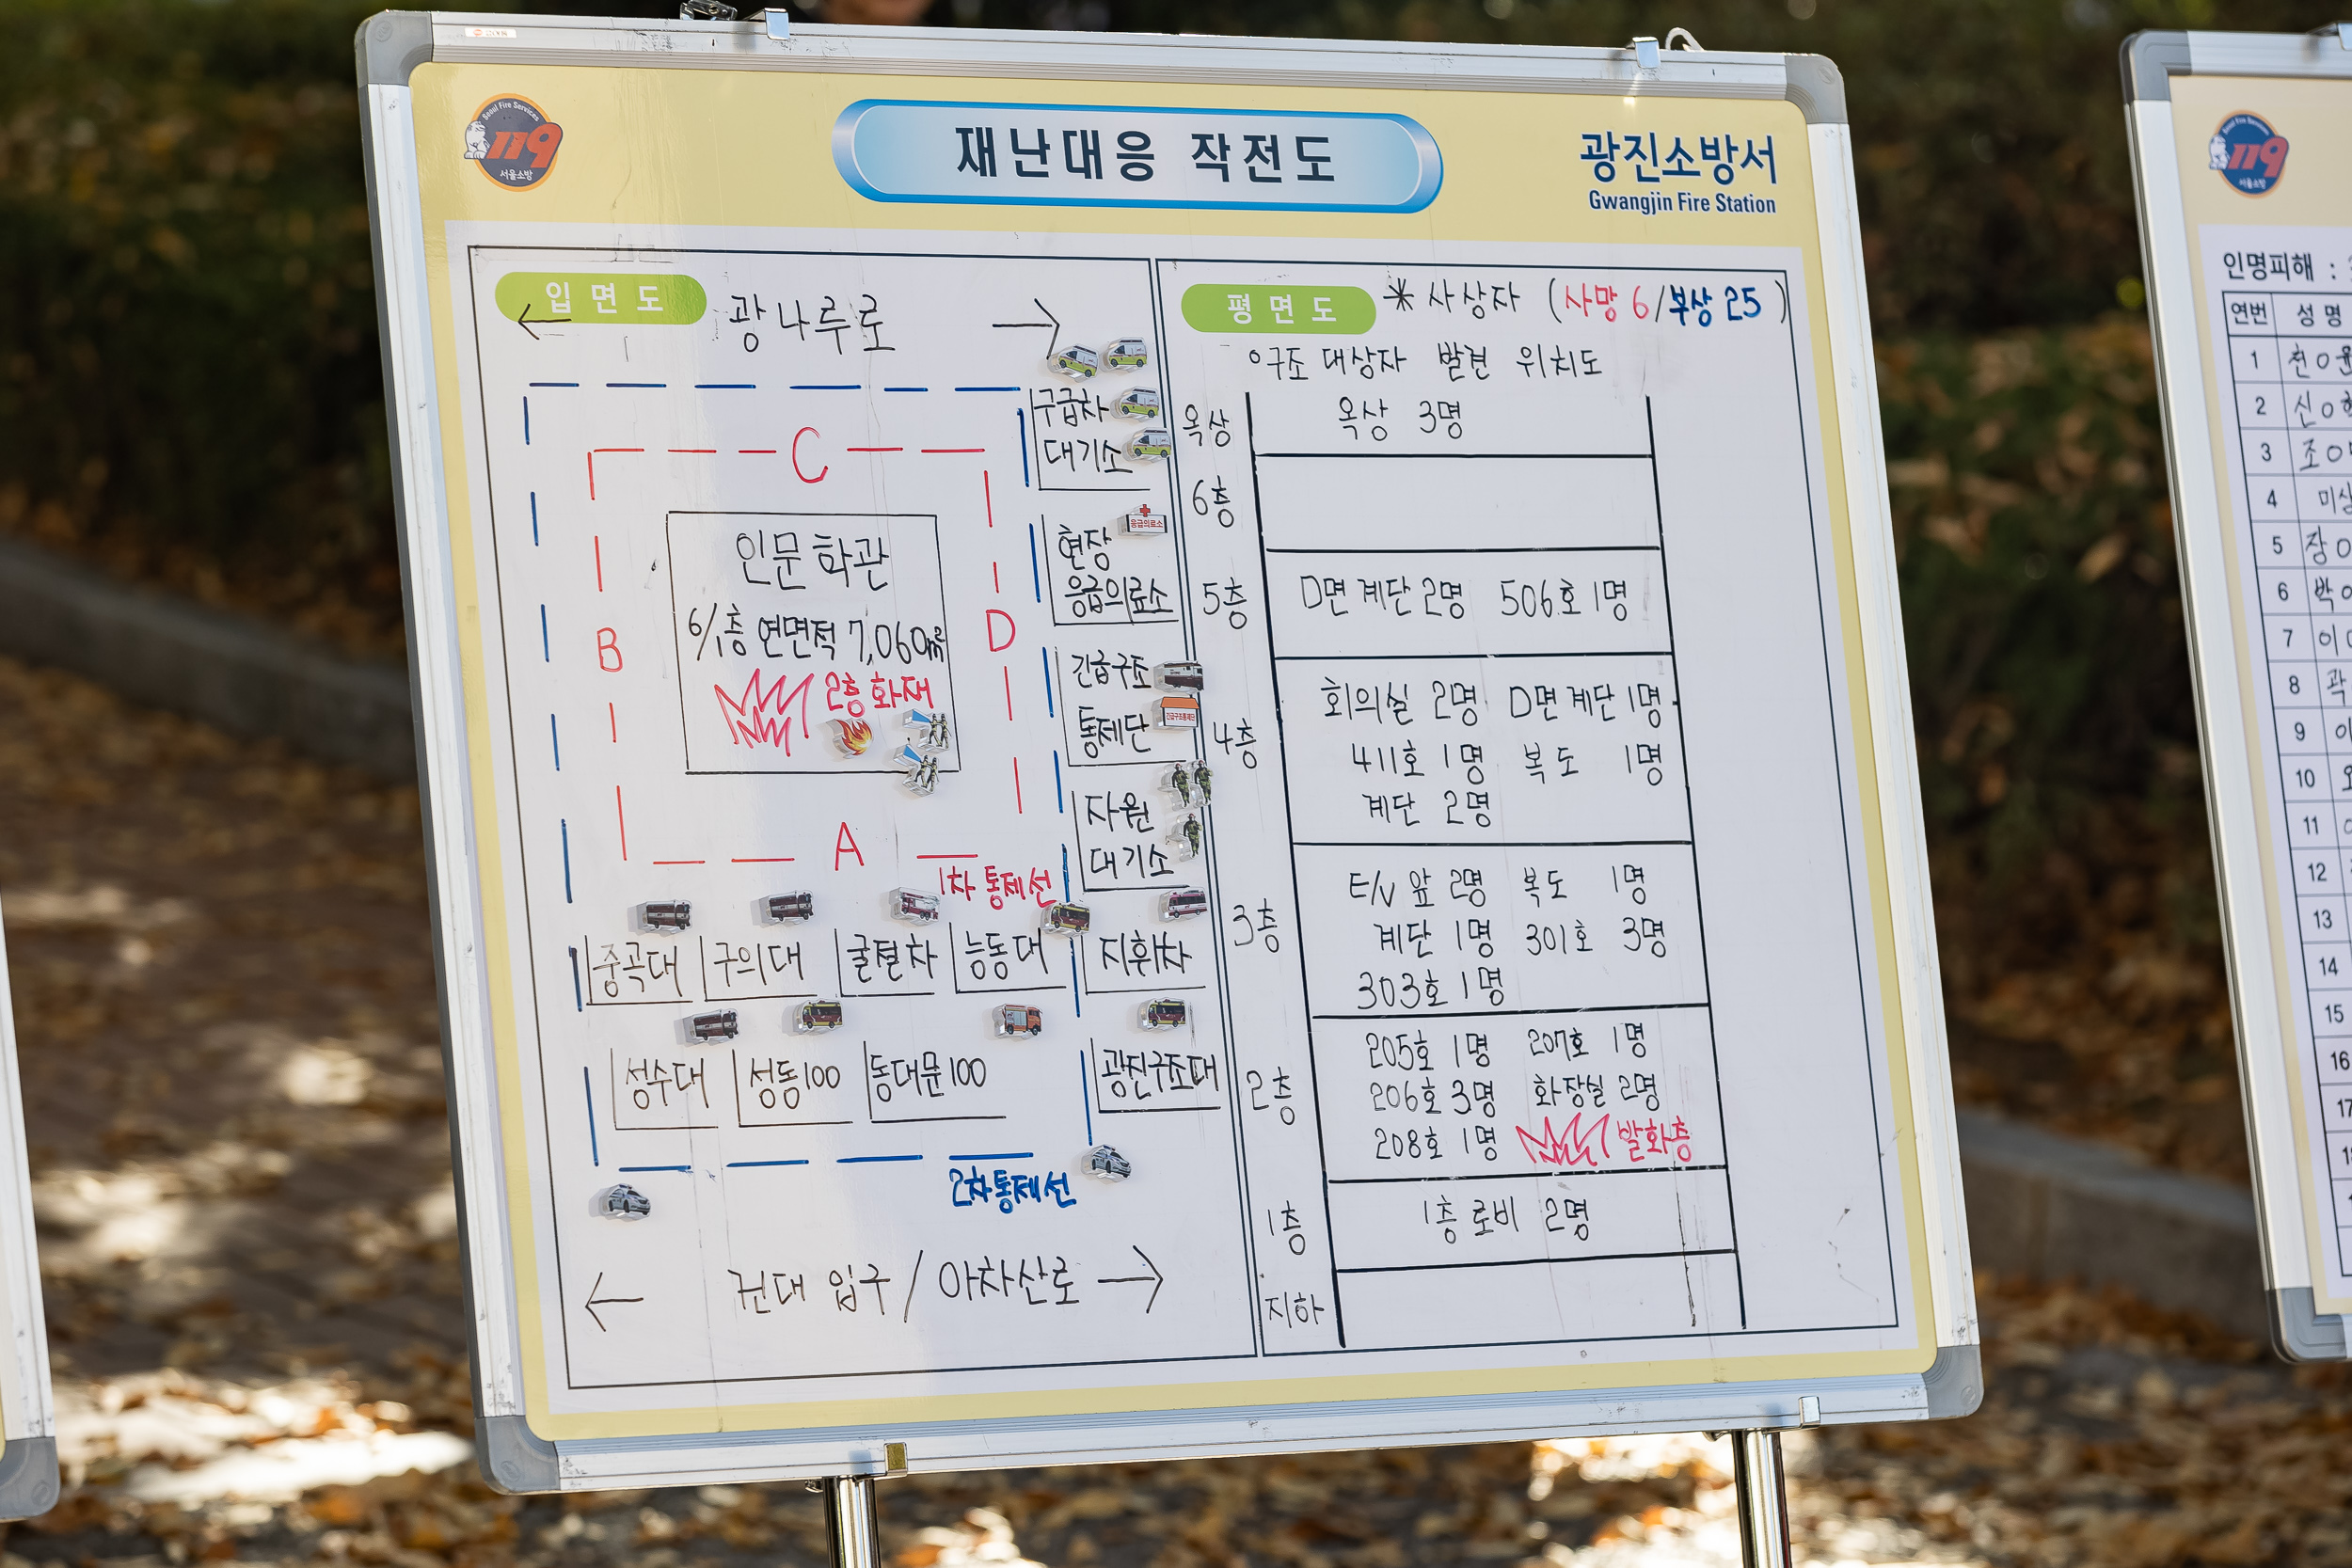 Seoul Fire Services
119
서울소방
재난대응 작전도
광진소방서
Gwangjin Fire Station
입면도
광나루로
구급차
대기소
C
인문학관
6/1층 연면적 7,060㎡
2층 화재
B
D
A
1차 통제선
현장
응급의료소
응급의료소
긴급구조
통제단
긴급구조통제단
자원
대기소
중곡대
구의대
굴절차
능동대
지휘차
성수대
성동100
동대문100
광진구조대
2차통제선
건대 입구 / 아차산로
평면도
* 사상자 (사망 6/부상 25)
○구조 대상자 발견 위치도
옥상 옥상 3명
6층
5층 D면 계단 2명 506호 1명
4층 회의실 2명 D면 계단 1명
411호 1명 복도 1명
계단 2명
3층 E/V 앞 2명 복도 1명
계단 1명 301호 3명
303호 1명
2층 205호 1명 207호 1명
206호 3명 화장실 2명
208호 1명 발화층
1층 1층 로비 2명
지하
119
서울소방
인명피해 :
연번 성명
1 천○
2 신○
3 조○
4 미상
5 장○
6 박○
7 이○
8 곽
9 이
10
11
12
13
14
15
16
17